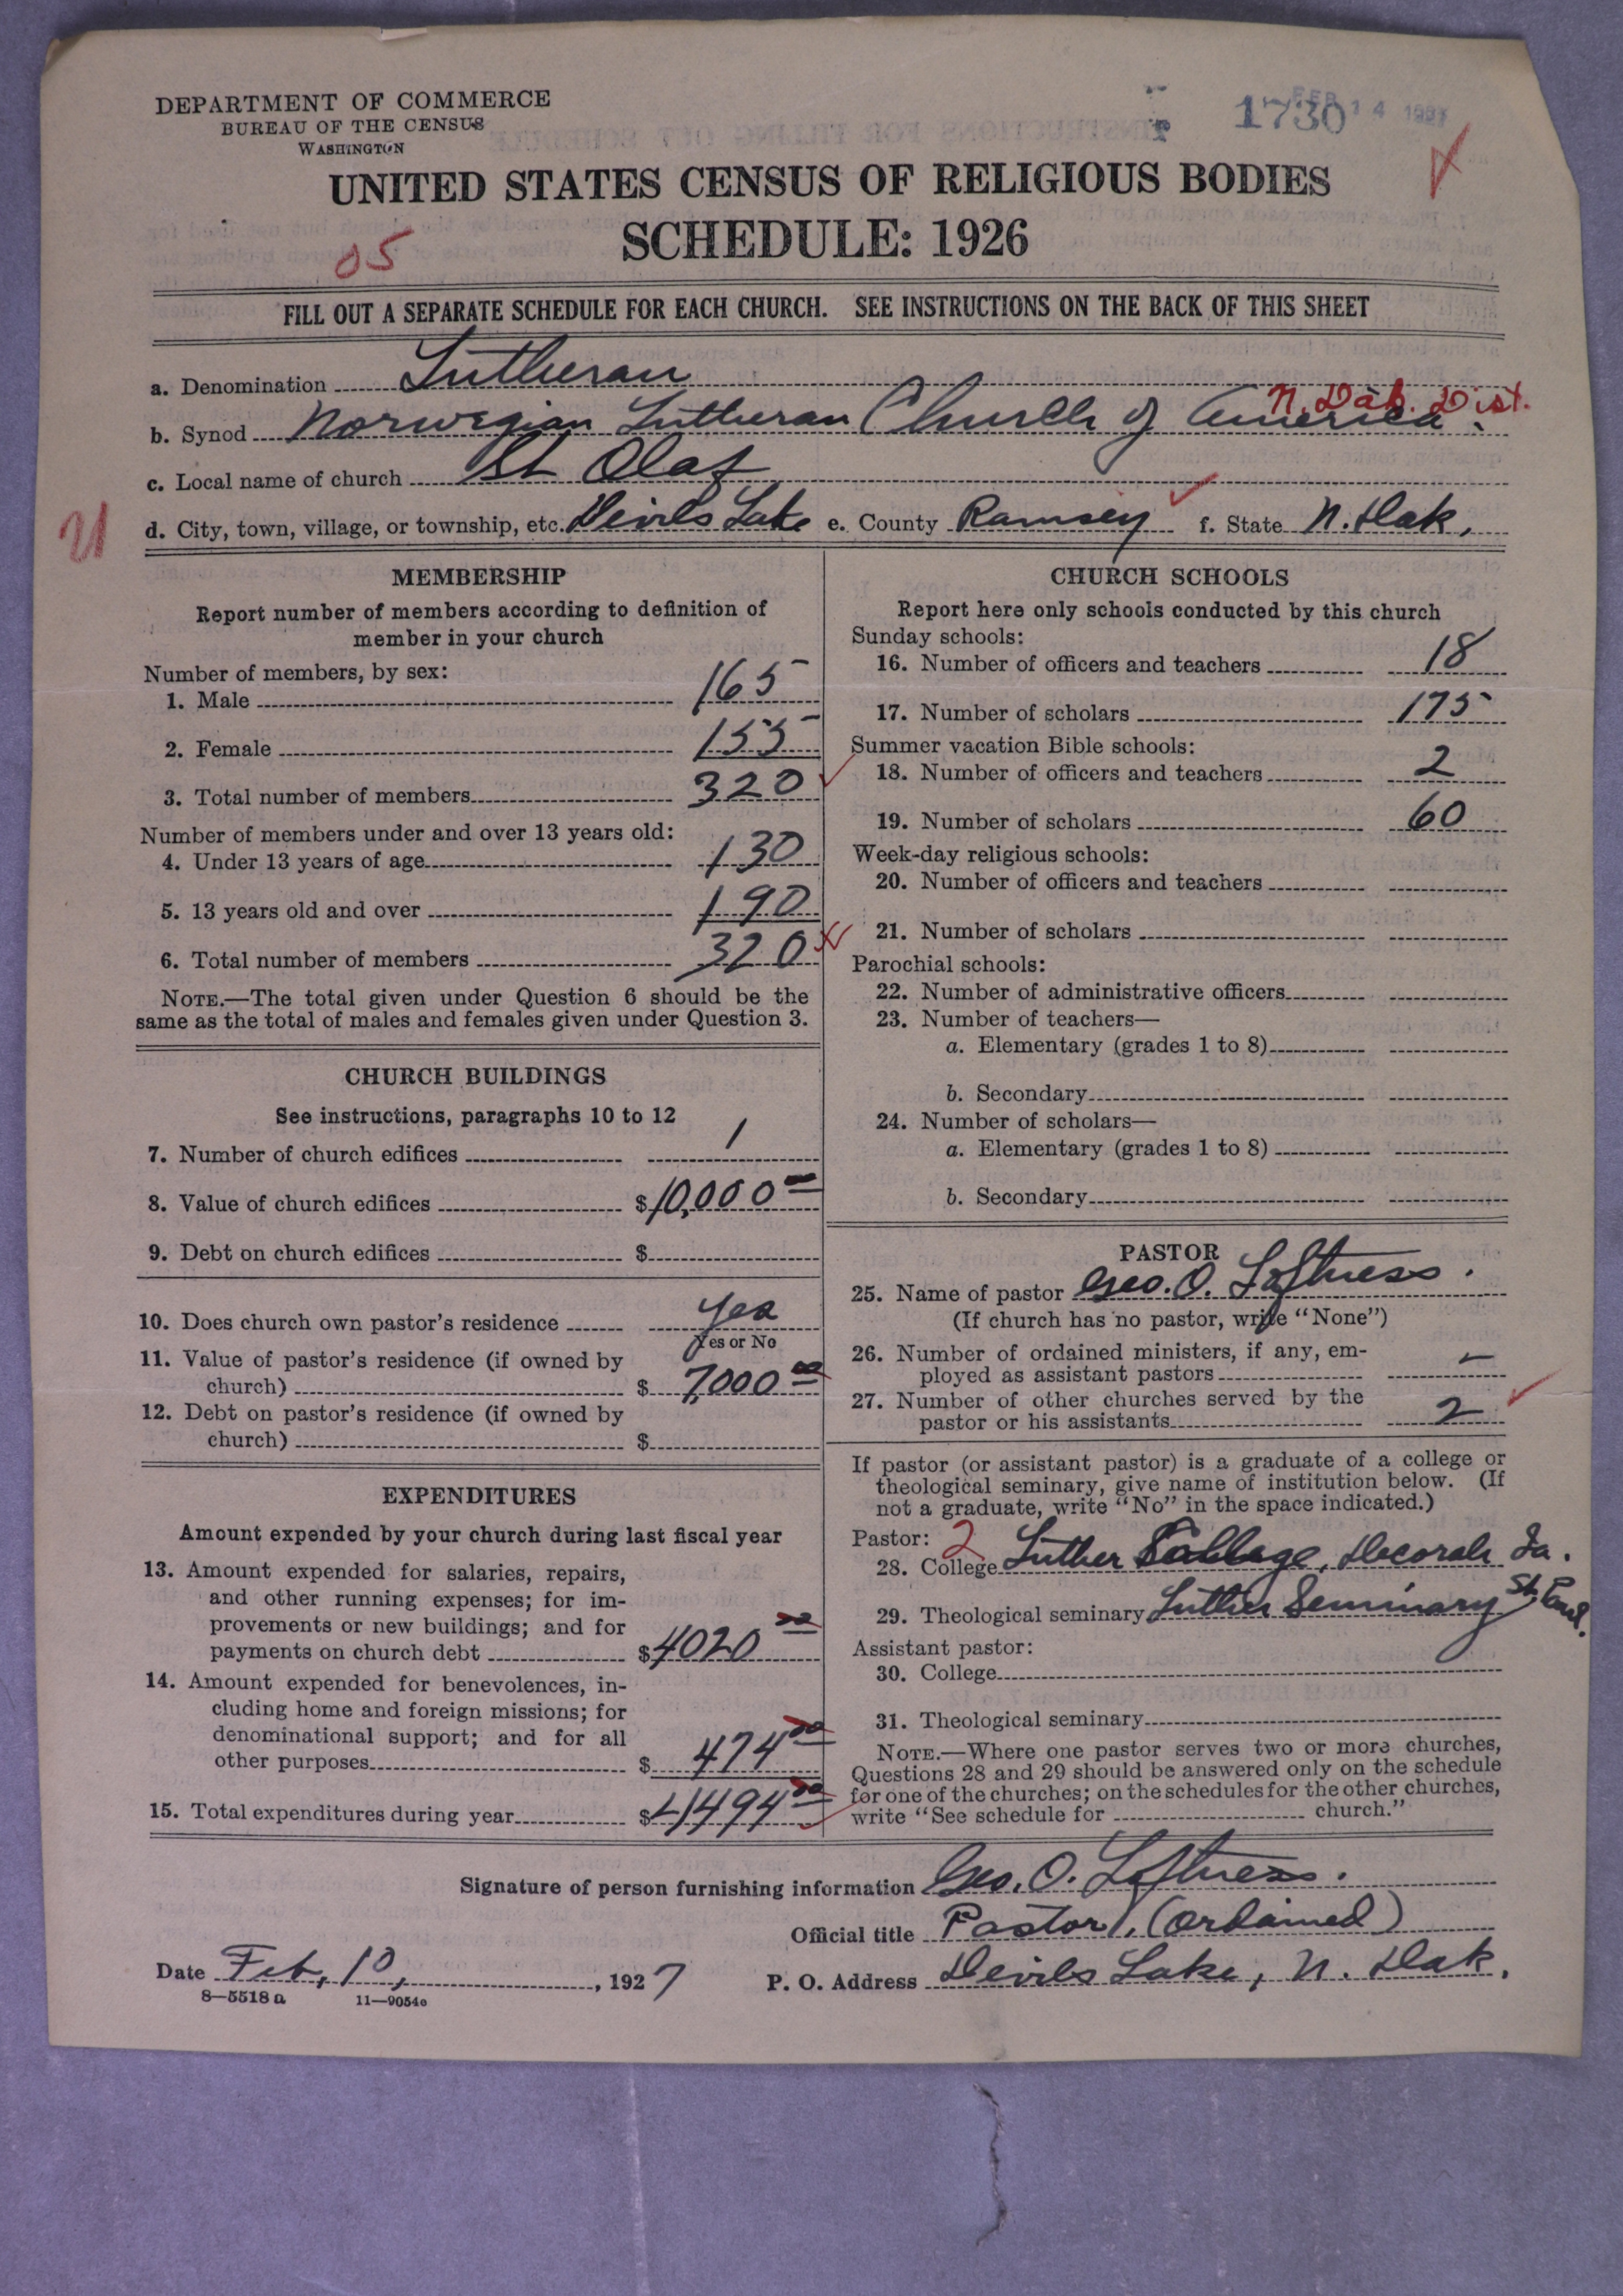 DEPARTMENT OF COMMERCE
BUREAU OF THE CENSUS
WASHINGTON
1730
FEB 14 1927
UNITED STATES CENSUS OF RELIGIOUS BODIES
SCHEDULE: 1926
05
FILL OUT A SEPARATE SCHEDULE FOR EACH CHURCH. SEE INSTRUCTIONS ON THE BACK OF THIS SHEET
a. Denomination Lutheran
N. Dak. Dist.
b. Synod Norwegian Lutheran Church of America.
c. Local name of church St Olaf
d. City, town, village, or township, etc. Devils Lake e. County Ramsey f. State N. Dak.
MEMBERSHIP
Report number of members according to definition of
member in your church
Number of members, by sex:
1. Male 165
2. Female 155
3. Total number of members 320
Number of members under and over 13 years old:
4. Under 13 years of age 130
5. 13 years old and over 190
6. Total number of members 320
NOTE.—The total given under Question 6 should be the
same as the total of males and females given under Question 3.
CHURCH BUILDINGS
See instructions, paragraphs 10 to 12
7. Number of church edifices 1
8. Value of church edifices $10,000 00
9. Debt on church edifices $
10. Does church own pastor's residence Yes
Yes or No
11. Value of pastor's residence (if owned by
church) $ 7,000 00
12. Debt on pastor's residence (if owned by
church) $
EXPENDITURES
Amount expended by your church during last fiscal year
13. Amount expended for salaries, repairs,
and other running expenses; for im-
provements or new buildings; and for
payments on church debt $4020 00
14. Amount expended for benevolences, in-
cluding home and foreign missions; for
denominational support; and for all
other purposes $ 474 00
15. Total expenditures during year $4494 00
CHURCH SCHOOLS
Report here only schools conducted by this church
Sunday schools:
16. Number of officers and teachers 18
17. Number of scholars 175
Summer vacation Bible schools:
18. Number of officers and teachers 2
19. Number of scholars 60
Week-day religious schools:
20. Number of officers and teachers
21. Number of scholars
Parochial schools:
22. Number of administrative officers
23. Number of teachers—
a. Elementary (grades 1 to 8)
b. Secondary
24. Number of scholars—
a. Elementary (grades 1 to 8)
b. Secondary
PASTOR
25. Name of pastor Geo. O. Loftness.
(If church has no pastor, write "None")
26. Number of ordained ministers, if any, em-
ployed as assistant pastors —
27. Number of other churches served by the
pastor or his assistants 2
If pastor (or assistant pastor) is a graduate of a college or
theological seminary, give name of institution below. (If
not a graduate, write "No" in the space indicated.)
Pastor: 2
28. College Luther College, Decorah Ia.
29. Theological seminary Luther Seminary St. Paul.
Assistant pastor:
30. College
31. Theological seminary
NOTE.—Where one pastor serves two or more churches,
Questions 28 and 29 should be answered only on the schedule
for one of the churches; on the schedules for the other churches,
write "See schedule for church."
Signature of person furnishing information Geo. O. Loftness.
Official title Pastor. (Ordained)
Date Feb, 10, 1927 P. O. Address Devils Lake, N. Dak.
8—5518 a 11—9054c